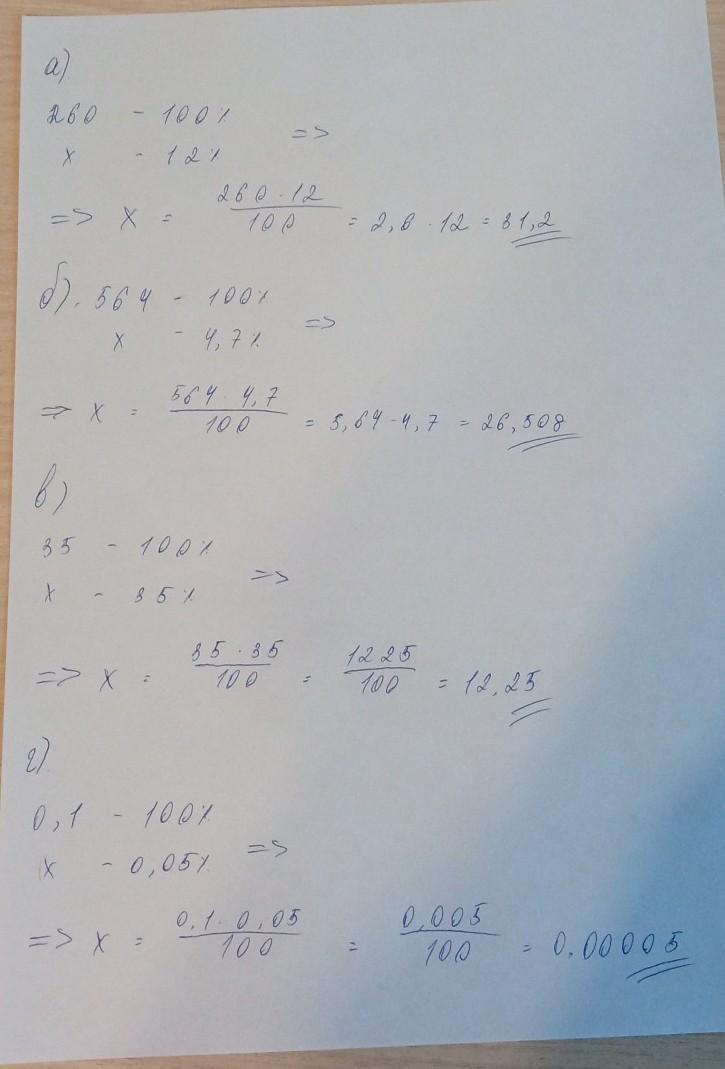 а)
260 - 100%
x - 12% =>
=> x = 260 · 12 / 100 = 2,6 · 12 = 31,2
б). 564 - 100%
x - 4,7% =>
=> x = 564 · 4,7 / 100 = 5,64 · 4,7 = 26,508
в)
35 - 100%
x - 35% =>
=> x = 35 · 35 / 100 = 1225 / 100 = 12,25
г)
0,1 - 100%
x - 0,05% =>
=> x = 0,1 · 0,05 / 100 = 0,005 / 100 = 0,00005